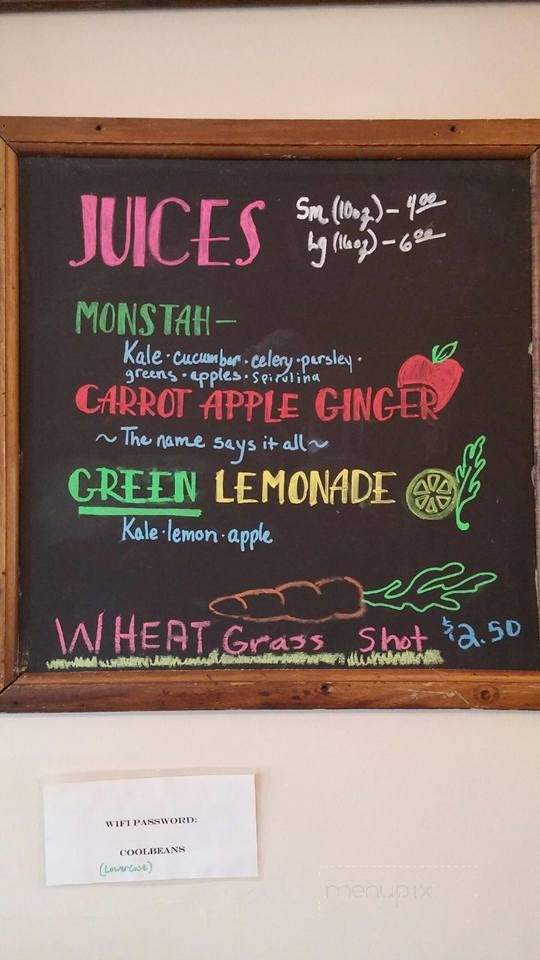 JUICES
Sm (10oz) - 4.00
Lg (16oz) - 6.00
MONSTAH -
Kale · cucumber · celery · parsley ·
greens · apples · spirulina
CARROT APPLE GINGER
~ The name says it all ~
GREEN LEMONADE
Kale · lemon · apple
WHEAT Grass Shot $2.50
WIFI PASSWORD:
COOLBEANS
(lowercase)
menupix